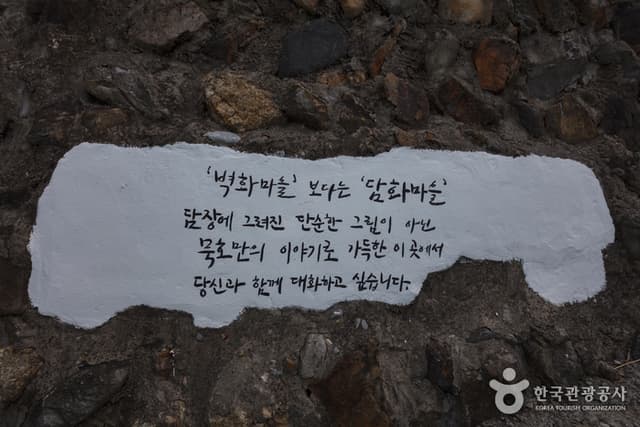 '벽화마을' 보다는 '담화마을'
담장에 그려진 단순한 그림이 아닌
묵호만의 이야기로 가득한 이 곳에서
당신과 함께 대화하고 싶습니다.
한국관광공사
KOREA TOURISM ORGANIZATION